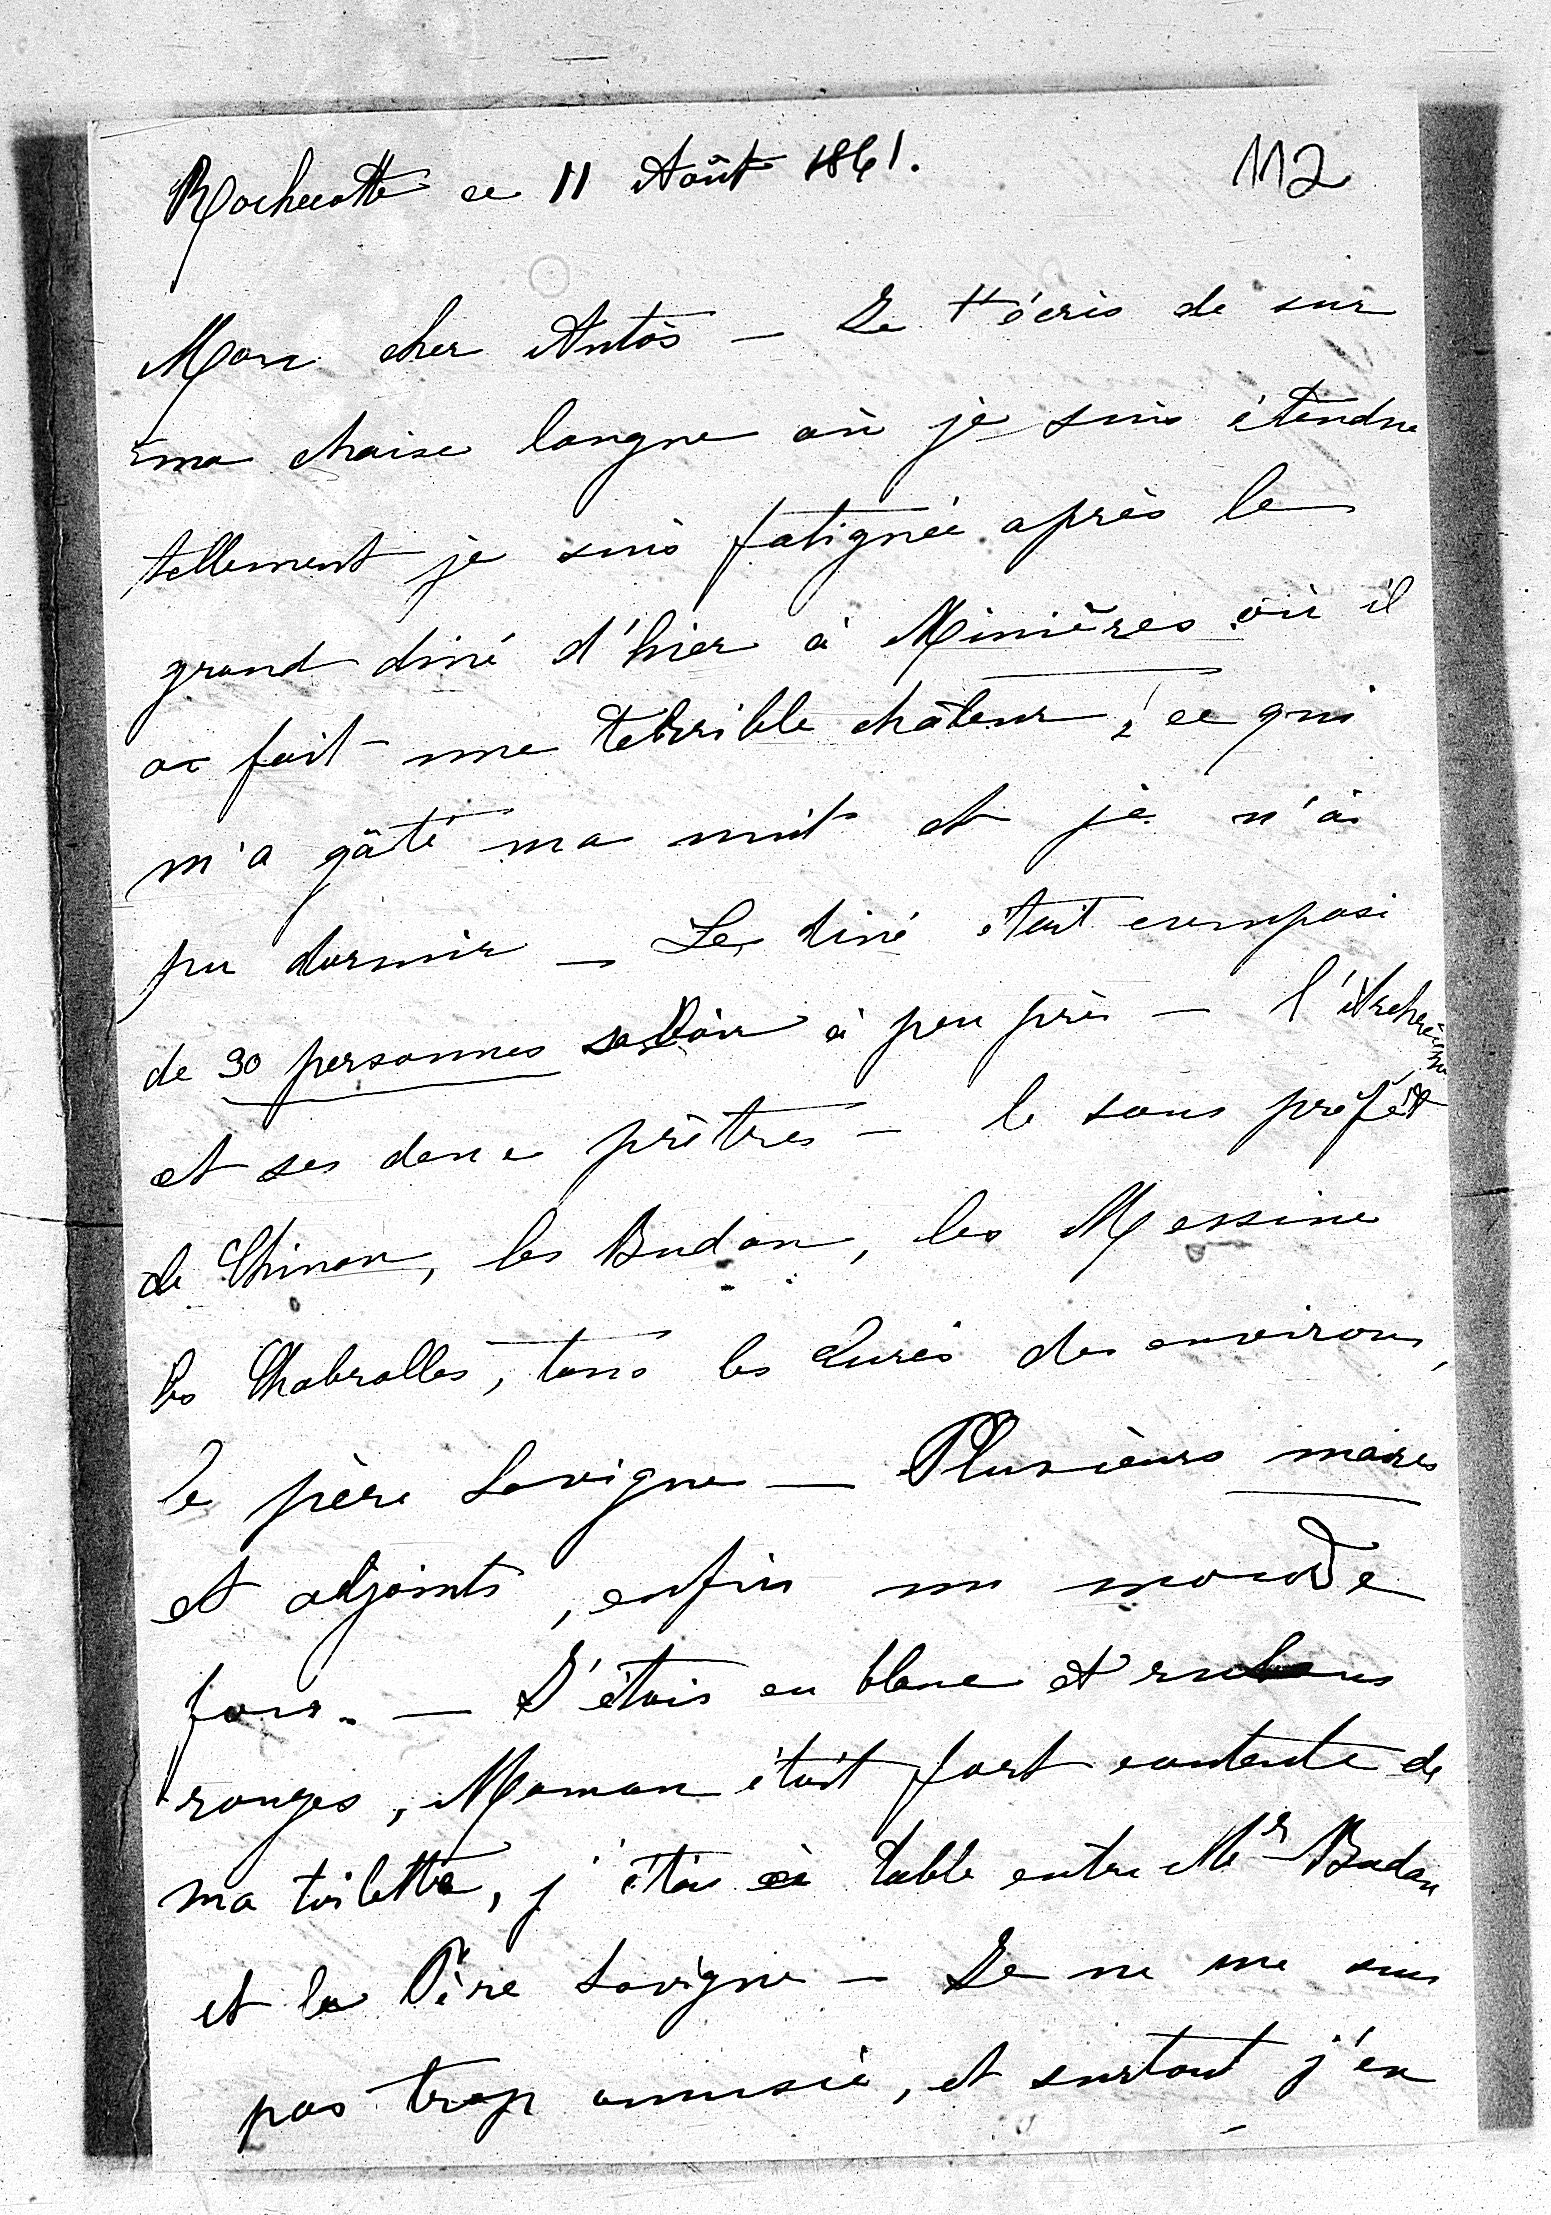 Rochecotte ce 11 Août 1861.
112
Mon cher Antòs — Je t'écris de sur
ma chaise longue où je suis étendue
tellement je suis fatiguée après le
grand diné d'hier à Minières où il
a fait une terrible châleur, ce qui
m'a gâté ma nuit et je n'ai
pu dormir — Le diné était composé
de 30 personnes savoir à peu près — l'Archevêque
et ses deux prêtres — le sous préfêt
de Chinon, les Budan, les Messine
les Chabrolles, tous les Curés des environs,
le père Lavigne — Plusieurs maires
et adjoints, enfin un monde
fou. — J'étais en blanc et rubans
rouges, Maman était fort contente de
ma toilette, j'étais à table entre Mr Budan
et le Père Lavigne — Je ne me suis
pas trop amusée, et surtout j'en